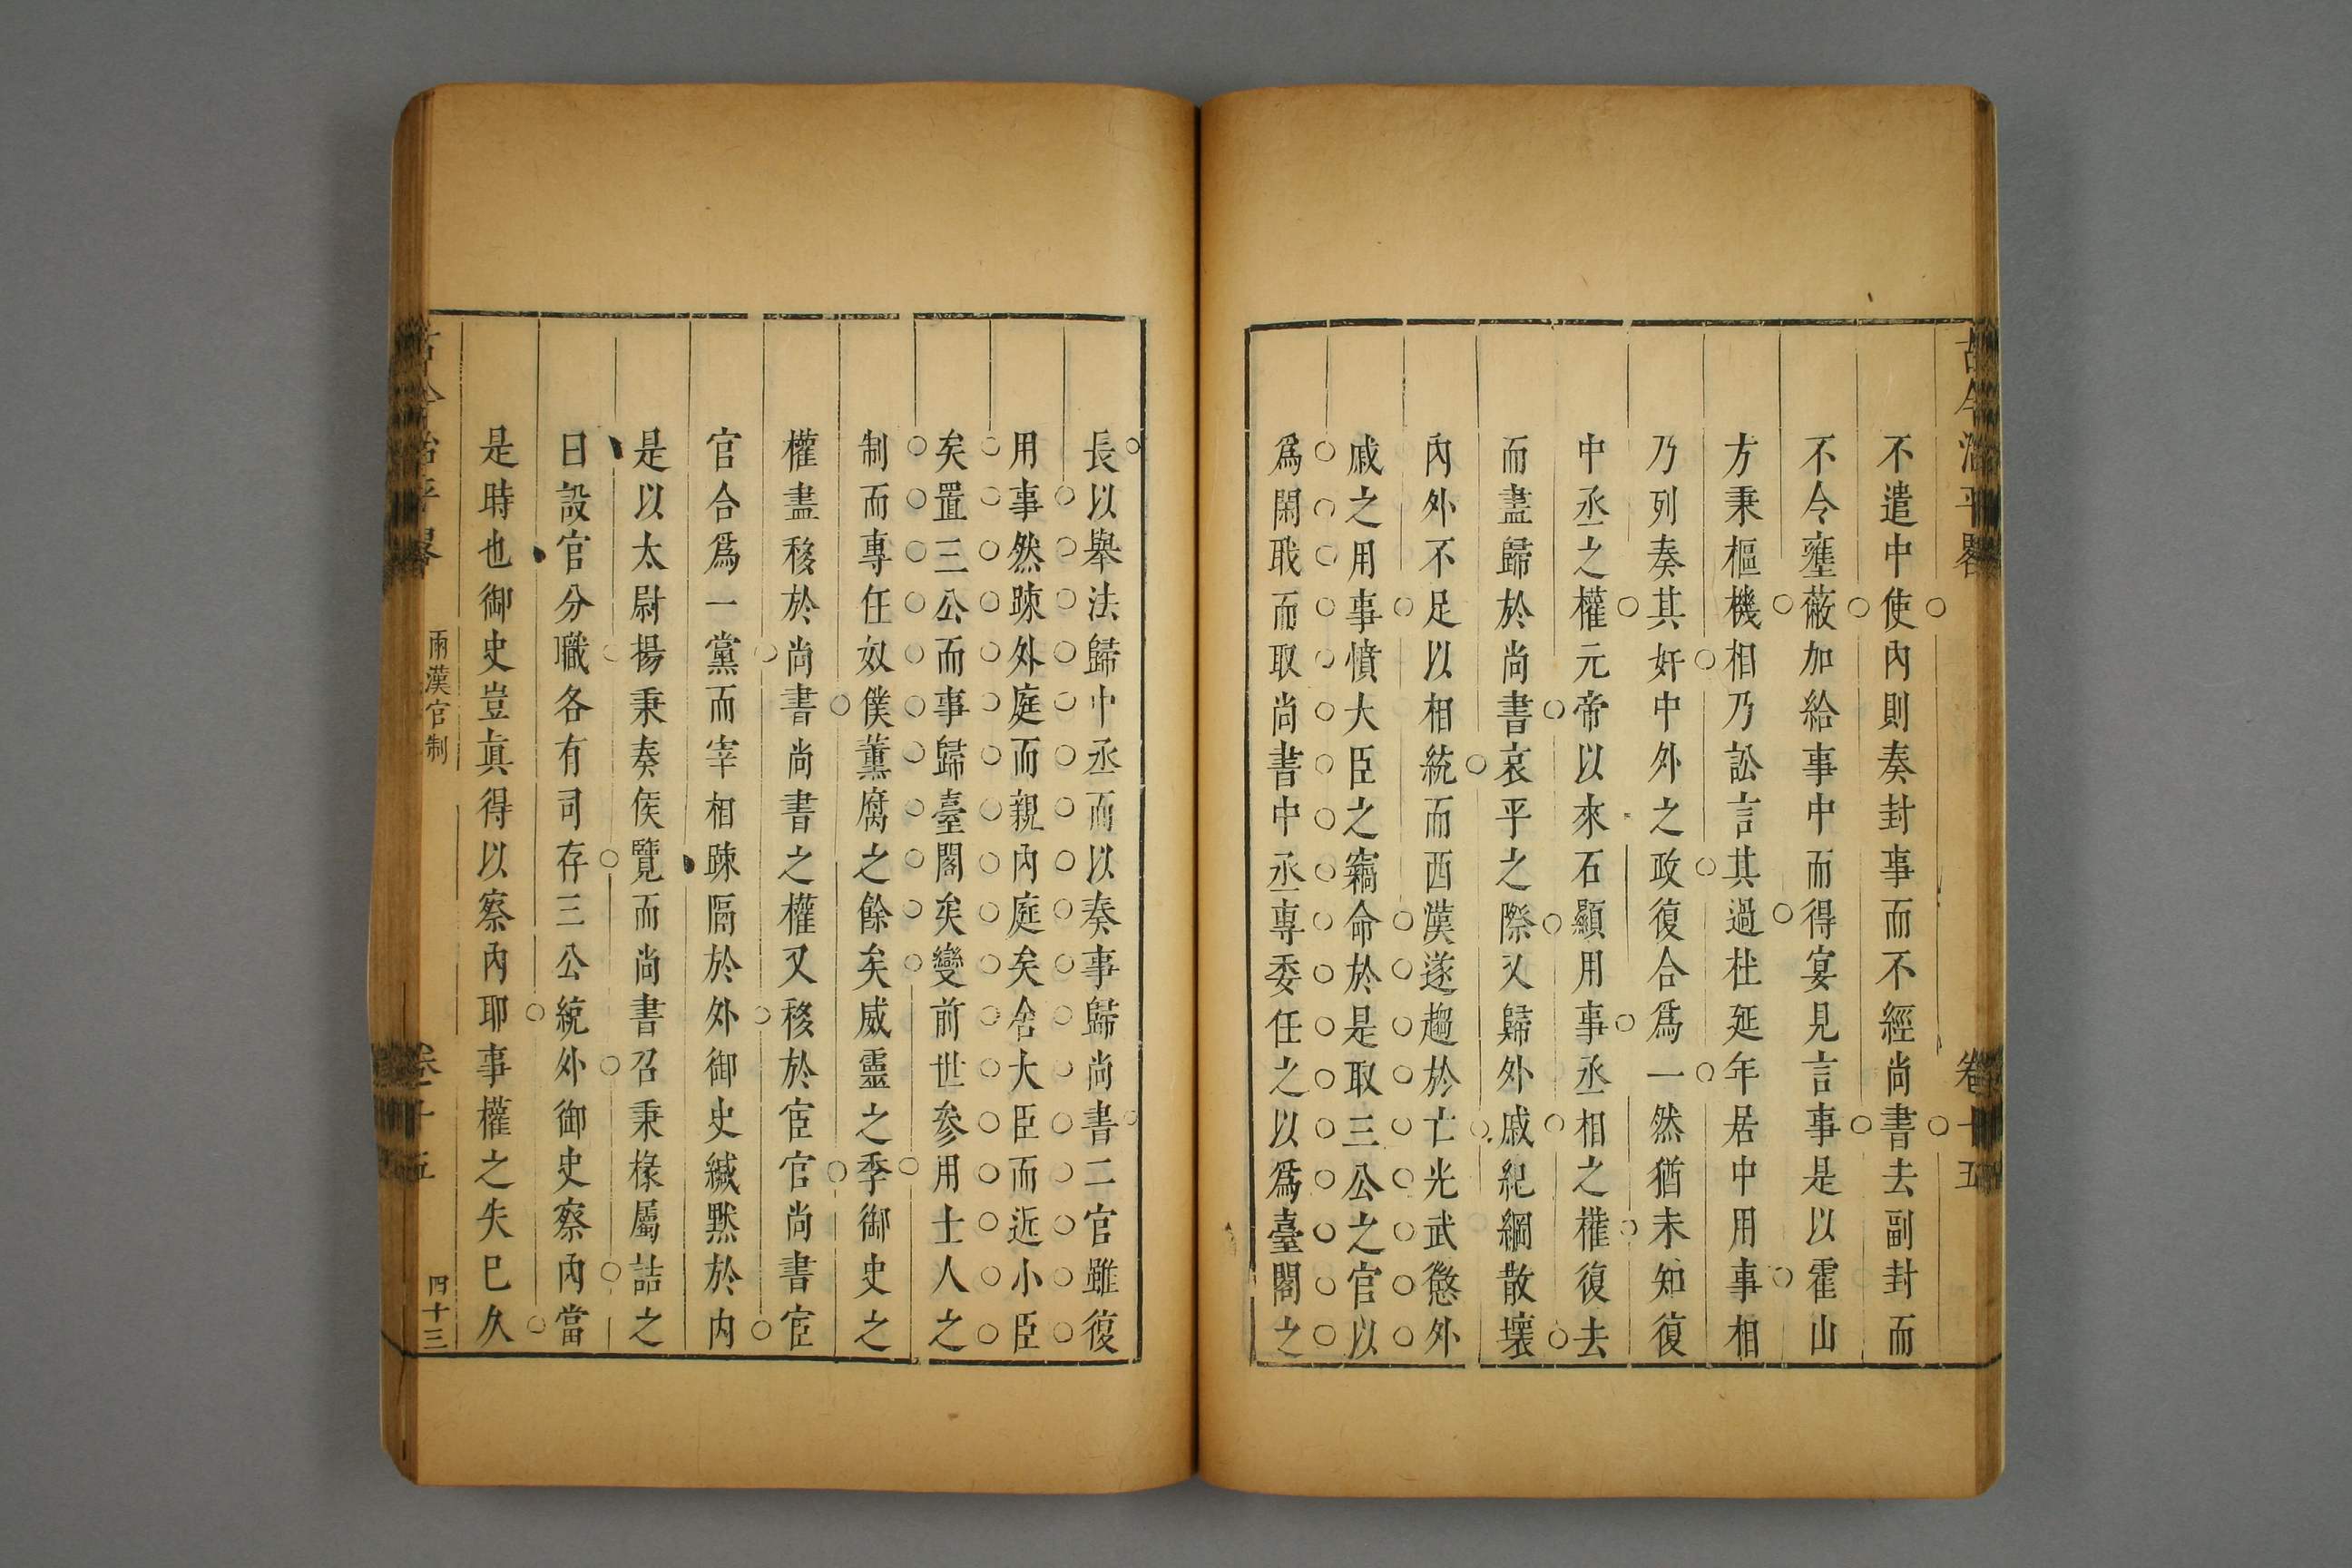 古今治平畧 卷十五
不遣中使內則奏封事而不經尚書去副封而
不令壅蔽加給事中而得宴見言事是以霍山
方秉樞機相乃訟言其過杜延年居中用事相
乃列奏其奸中外之政復合爲一然猶未知復
中丞之權元帝以來石顯用事丞相之權復去
而盡歸於尚書哀平之際又歸外戚紀綱散壞
內外不足以相統而西漢遂趨於亡光武懲外
戚之用事憤大臣之竊命於是取三公之官以
爲閑職而取尚書中丞專委任之以爲臺閣之
長以舉法歸中丞而以奏事歸尚書二官雖復
用事然踈外庭而親內庭矣舍大臣而近小臣
矣置三公而事歸臺閣矣變前世參用士人之
制而專任奴僕薰腐之餘矣威靈之季御史之
權盡移於尚書尚書之權又移於宦官尚書宦
官合爲一黨而宰相踈隔於外御史緘默於內
是以太尉揚秉奏侯覽而尚書召秉椽屬詰之
曰設官分職各有司存三公統外御史察內當
是時也御史豈眞得以察內耶事權之失巳久
古今治平畧 兩漢官制 卷十五 四十三